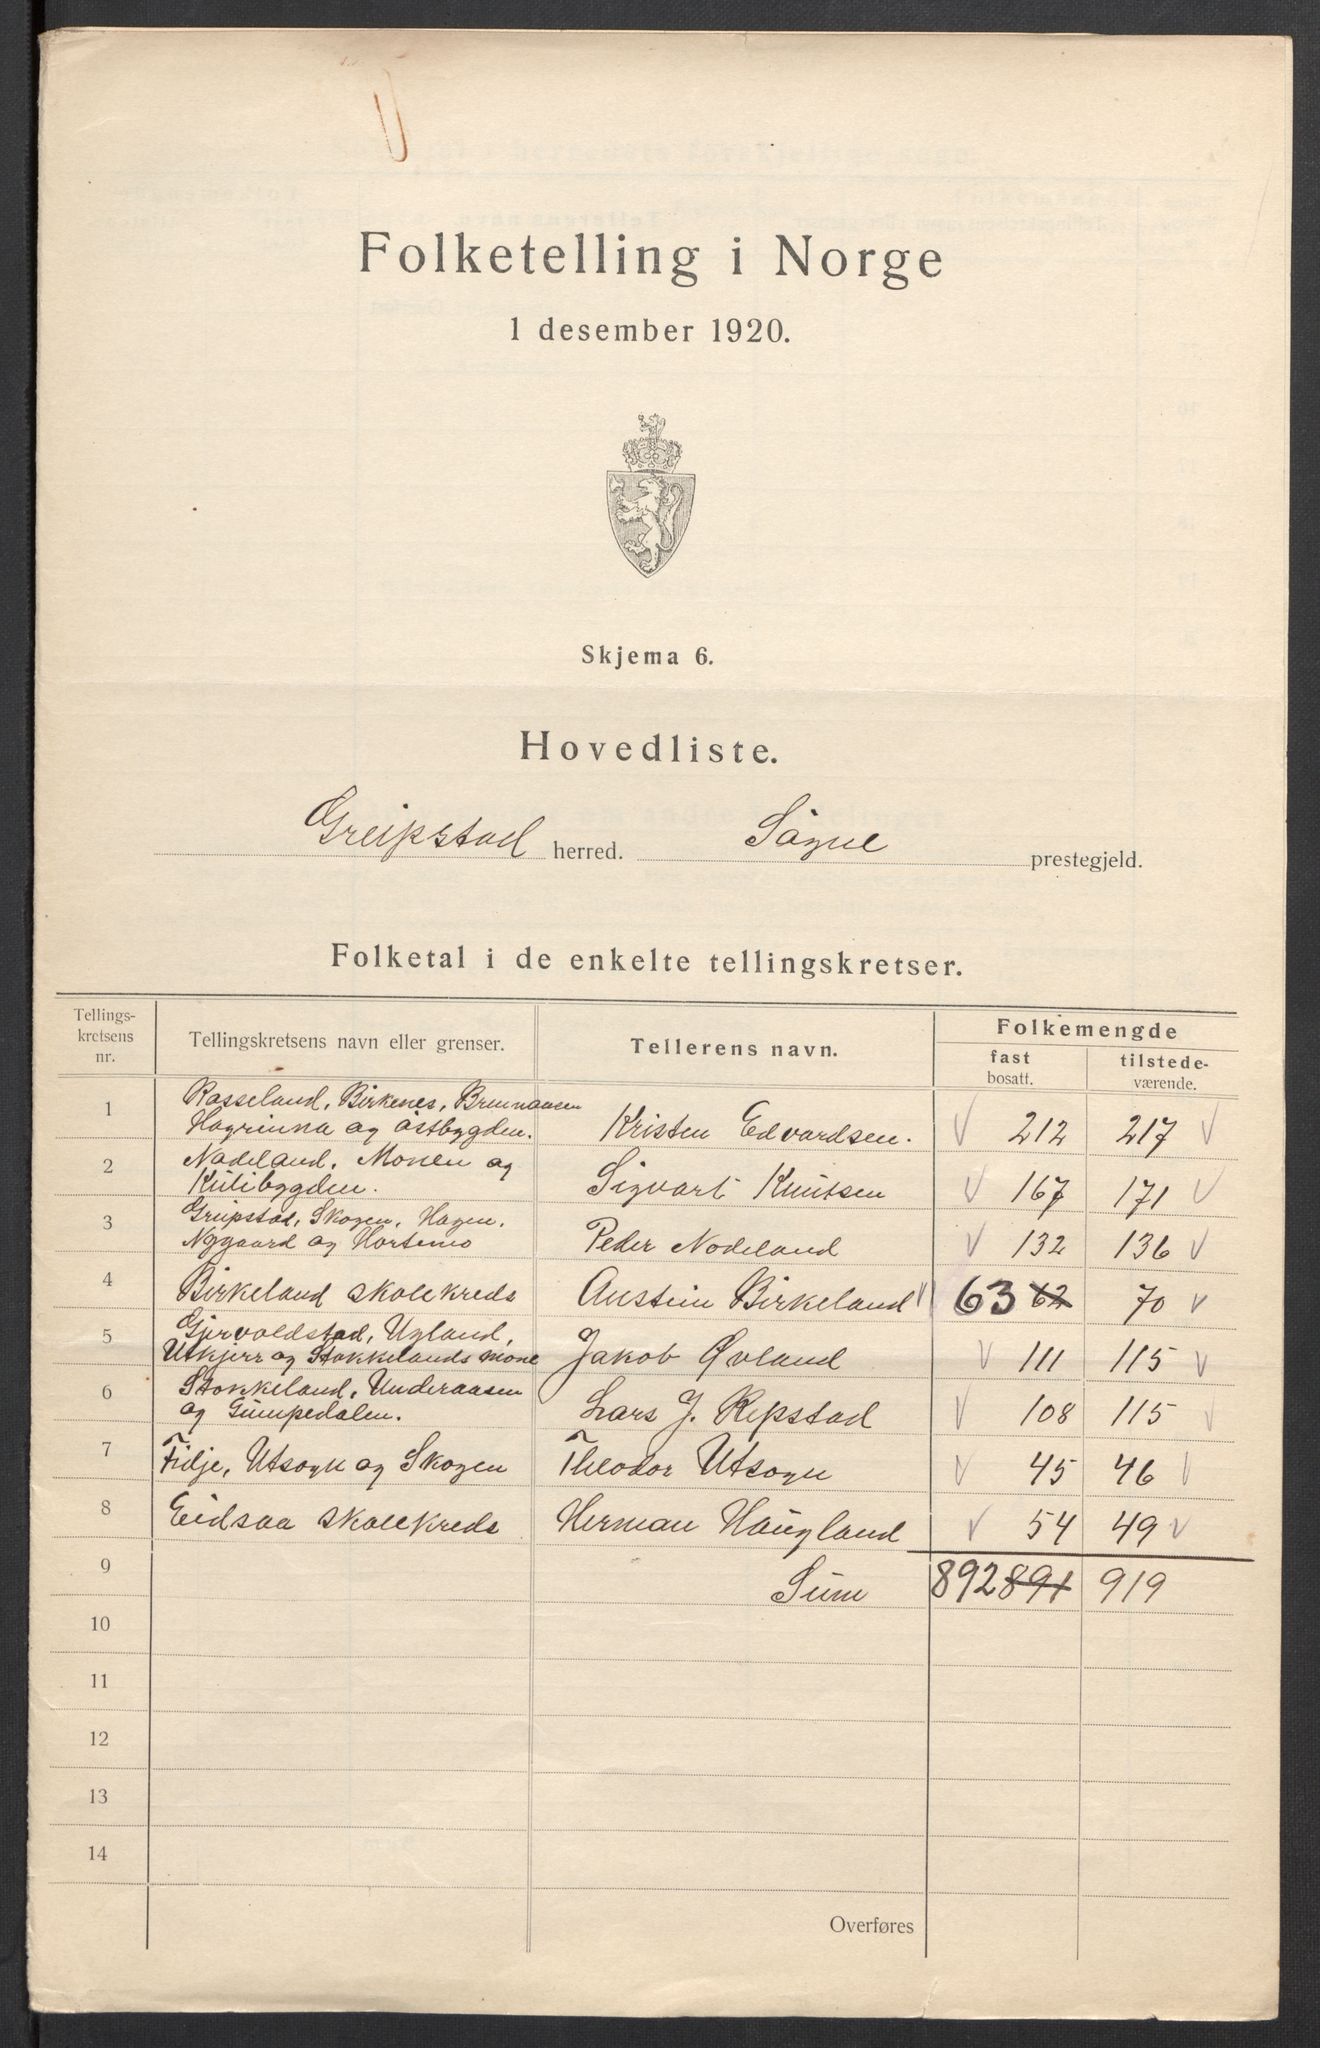 Folketelling i Norge
1 desember 1920.
Skjema 6.
Hovedliste.
Greipstad herred. Søgne prestegjeld.
Folketal i de enkelte tellingskretser.
Tellingskretsens nr. Tellingskretsens navn eller grenser. Tellerens navn. Folkemengde
fast bosatt. tilstedeværende.
1 Rasseland, Birkenes, Brunnaasen
Hagrinna og østbygden. Kristen Edvardsen. V 212 217 V
2 Nodeland, Monen og
Kulibygden. Sigvart Knutsen V 167 171 V
3 Greipstad, Skogen, Hagen,
Nygaard og Hortemo Peder Nodeland V 132 136 V
4 Birkeland skolekreds Austein Birkeland V 63 62 70 V
5 Gjervoldstad, Ugland,
Utkjerr og Stokkelands mone Jakob Øvland V 111 115 V
6 Stokkeland, Underaasen
og Gumpedalen. Lars J. Repstad V 108 115 V
7 Fidje, Utsogn og Skogen Theodor Utsogn V 45 46 V
8 Eidsaa skolekreds Herman Haugland V 54 49 V
9 Sum 892 891 919
10
11
12
13
14
Overføres